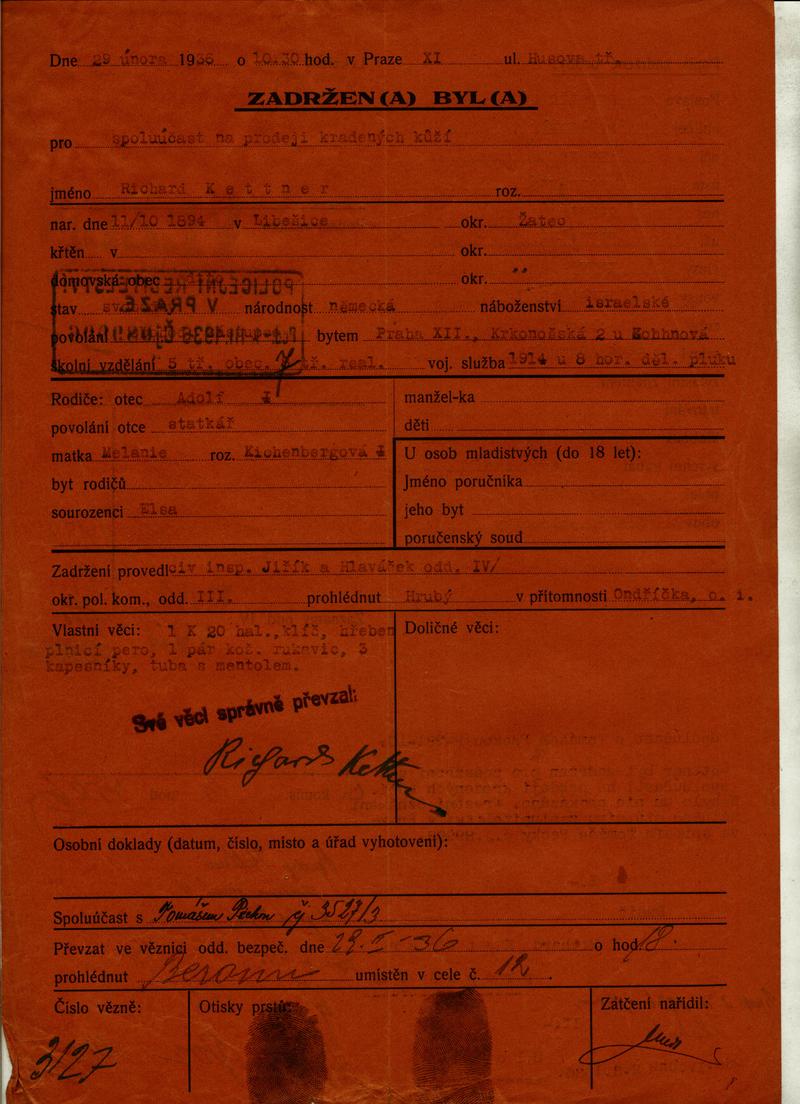 Dne 29 února 1936 o 10.30 hod. v Praze XI ul. Husova tř.
ZADRŽEN(A) BYL(A)
pro spoluúčast na prodeji kradených kůží
jméno Richard Kettner roz.
nar. dne 11/10 1894 v Libešice okr. Žatec
křtěn v okr.
domovská obec okr. "
stav národnost německá náboženství israelské
povolání bytem Praha XII., Krkonošská 2 u Kohnová
školní vzdělání 5 tř. obec. 7 tř. real. voj. služba 1914 u 8 hor. děl. pluku
Rodiče: otec Adolf
manžel-ka
povolání otce statkář
děti
matka Melanie roz. Kichenbergová
U osob mladistvých (do 18 let):
byt rodičů
Jméno poručníka
sourozenci Elsa
jeho byt
poručenský soud
Zadržení provedl civ insp. Jiřík a Hlaváček odd. IV/
okr. pol. kom., odd. III. prohlédnut Hrubý v přítomnosti Ondříčka, o. i.
Vlastní věci: 1 K 20 hal., klíč, hřeben
plnicí pero, 1 pár kož. rukavic, 3
kapesníky, tuba s mentolem.
Doličné věci:
Své věci správně převzal:
Richard Kettner
Osobní doklady (datum, číslo, místo a úřad vyhotovení):
Spoluúčast s Tomášem čj 3527/3
Převzat ve věznici odd. bezpeč. dne 29. II - 36 o hod 18.
prohlédnut Beroun umístěn v cele č. 12.
Číslo vězně:
Otisky prstů:
Zatčení nařídil:
3127